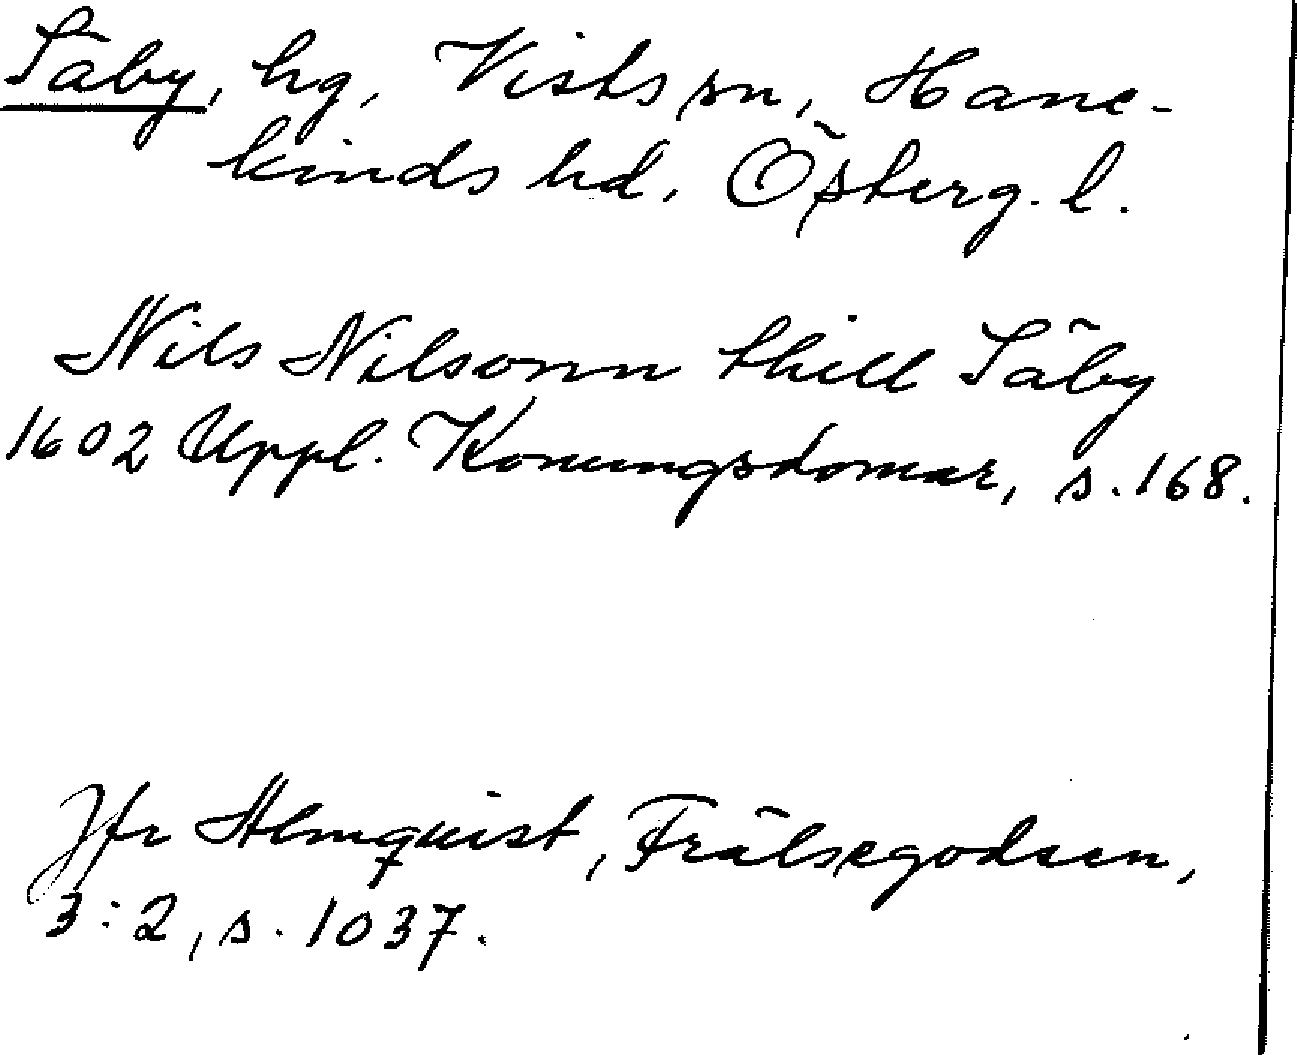 Säby, hg, Vists sn, Hane-
kinds hd, Österg. l.
Nils Nilsonn thill Säby
1602 Uppl. Konungsdomar, s. 168.
Jfr Almquist, Frälsegodsen,
3:2, s. 1037.